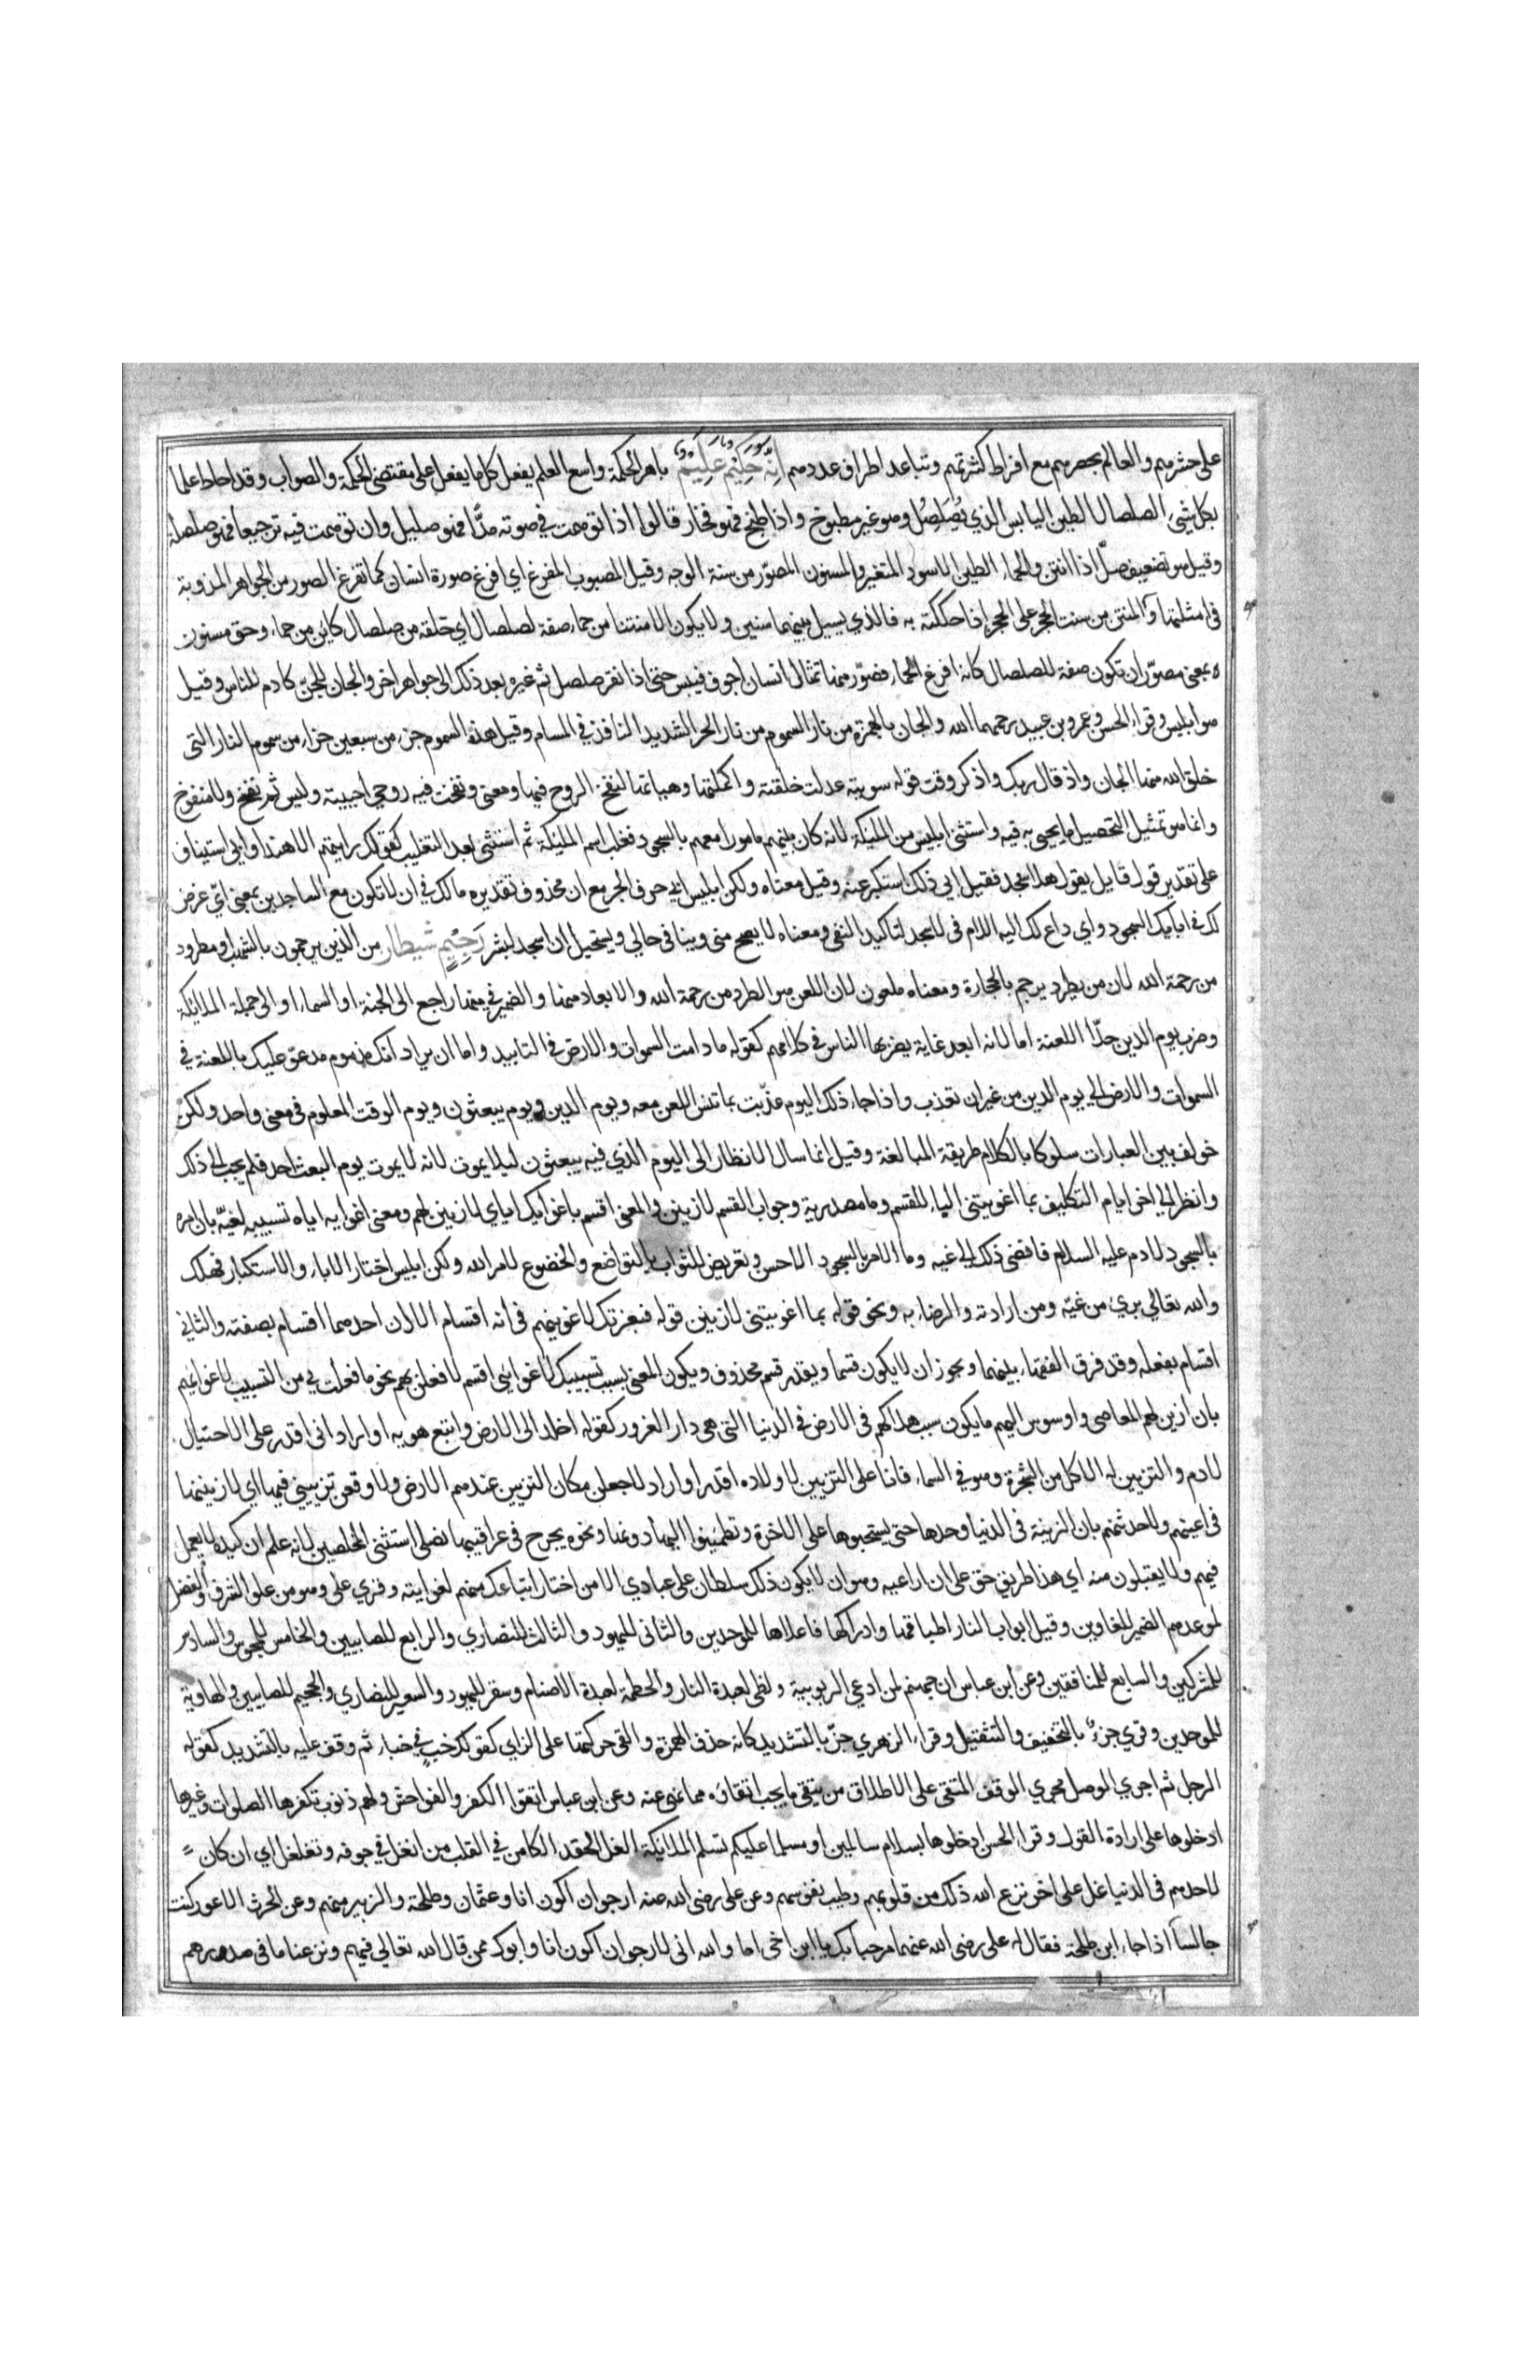 على حشرهم والعالم بحصرهم مع افراط كثرتهم وتباعد اطراف عددهم اِنَّهُ حَكِيمٌ عَلِيمٌ باهر الحكمة واسع العلم يفعل كل ما يفعل على مقتضى الحكمة والصواب وقد احاط علما
بكل شيئ الصلصال الطين اليابس الذي يُصَلصِلُ وهو غير مطبوخ واذا طبخ فهو فخار قالوا اذا توهمت في صوته مدًّا فهو صليل وان توهمت فيه ترجيعا فهو صلصلة
وقيل هو تضعيف صلّ اذا انتن والحماء الطين الاسود المتغير والمسنون المصوّر من سنة الوجه وقيل المصبوب المفرغ اي افرغ صورة انسان كما تفرغ الصور من الجواهر المذوبة
في امثلتها او المنتن من سنت الحجر على الحجر اذا حككته به فالذي يسيل بينهما سنين ولا يكون الا منتنا من حماء صفة لصلصال اي خلقه من صلصال كاين من حماء وحق مسنون
ه بمعنى مصوّر ان تكون صفة للصلصال كانه افرغ الحماء فصوّر منها تمثال انسان اجوف فيبس حتى اذا نقر صلصل ثم غيره بعد ذلك الى جواهر اخر والجان للجن كادم للناس وقيل
هو ابليس وقراء الحسن وعمرو بن عبيد رحمهما الله والجان بالهمزة من نار السموم من نار الحر الشديد النافذ في المسام وقيل هذه السموم جزء من سبعين جزاء من سموم النار التي
خلق الله منها الجان واذ قال ربك واذكر وقت قوله سويته عدلت خلقته واكملتها وهياتها لنفخ الروح فيها ومعنى ونفخت فيه روحي احييته وليس ثم نفخ ولا منفوخ
وانما هو تمثيل لتحصيل ما يحيى به فيه واستثنى ابليس من المليكة لانه كان بينهم مامورا معهم بالسجود فغلب اسم المليكة ثم استثنى بعد التغليب كقولك رايتهم الا هندا وابى استيناف
على تقدير قول قايل يقول هلا سجد فقيل ابى ذلك واستكبر عنه وقيل معناه ولكن ابليس ابى حرف الجر مع ان محذوف تقديره مالك في ان لا تكون مع الساجدين بمعنى اي غرض
لك في ابايك السجود واي داع لك اليه اللام في لاسجد لتاكيد النفي ومعناه لا يصح مني وينافي حالي ويستحيل ان اسجد لبشر رَجِيمٌ شيطان من الذين يرجمون بالشهب او مطرود
من رحمة الله لان من يطرد يرجم بالحجارة ومعناه ملعون لان اللعن هو الطرد من رحمة الله والابعاد منها والضمير في منها راجع الى الجنة او السماء او الى جملة الملائكة
وضرب يوم الدين حدّا اللعنة اما لانه ابعد غاية يضربها الناس في كلامهم كقوله ما دامت السموات والارض في التابيد واما ان يراد انك مذموم مدعو عليك باللعنة في
السموات والارض الى يوم الدين من غير ان تعذب واذا جاء ذلك اليوم عذّبت بما تنسى اللعن معه ويوم الدين ويوم يبعثون ويوم الوقت المعلوم في معنى واحد ولكن
خولف بين العبارات سلوكا بالكلام طريقة المبالغة وقيل انما سال الانظار الى اليوم الذي فيه يبعثون ليلا يموت لانه لا يموت يوم البعث احد فلم يجب الى ذلك
وانظر الى اخر ايام التكليف بما اغويتني الباء للقسم وما مصدرية وجواب القسم لازينن والمعنى اقسم باغوايك اياي لازينن لهم ومعنى اغوايه اياه تسبيبه لغيّه بان امره
بالسجود لادم عليه السلام فافضى ذلك الى غيه وما الامر بالسجود الا حسن وتعريض للثواب بالتواضع والخضوع لامر الله ولكن ابليس اختار الاباء والاستكبار فهلك
والله تعالى بريء من غيّه ومن ارادته والرضاء به ونحو قوله بما اغويتني لازينن قوله فبعزتك لاغوينهم في انه اقسام الا ان احدهما اقسام بصفته والثاني
اقسام بفعله وقد فرق الفقهاء بينهما ويجوز ان لا يكون قسما ويقدر قسم محذوف ويكون المعنى بسبب تسبيبك لاغوائي اقسم لافعلن بهم نحو ما فعلت بي من التسبيب لاغوائهم
بان ازين لهم المعاصي واوسوس اليهم ما يكون سبب هلاكهم في الارض في الدنيا التي هي دار الغرور كقوله اخلد الى الارض واتبع هويه او اراد اني اقدر على الاحتيال
لادم والتزيين له الاكل من الشجرة وهو في السماء فانا على التزيين لاولاده اقدر او اراد لاجعلن مكان التزيين عندهم الارض ولاوقعن تزييني فيها اي لازيننها
في اعينهم ولاحدثنهم بان الزينة في الدنيا وحدها حتى يستحبوها على الاخرة وتطمينوا اليها دونها ونحوه يجرح في عراقيبها نصلى استثنى المخلصين لانه علم ان كيده لا يعمل
فيهم ولا يقبلون منه اي هذا طريق حق على ان اراعيه وهو ان لا يكون ذلك سلطان على عبادي الا من اختار اتباعك منهم لغوايته وقري على وهو من علو الشرف والفضل
لموعدهم الضمير للغاوين وقيل ابواب النار اطباقها وادراكها فاعلاها للموحدين والثاني لليهود والثالث للنصاري والرابع للصابيين والخامس للمجوس والسادس
للمشركين والسابع للمنافقين وعن ابن عباس ان جهنم لمن ادعى الربوبية ولظى لعبدة النار والحطمة لعبدة الاصنام وسقر لليهود والسعير للنصاري والجحيم للصابيين والهاوية
للموحدين وقري جزءٌ بالتخفيف والتثقيل وقراء الزهري جزّ بالتشديد كانه حذف الهمزة والقى حركتها على الزاي كقولك خبّ في خباء ثم وقف عليه بالتشديد كقوله
الرجل ثم اجري الوصل مجري الوقف المتقي على الاطلاق من يتقي ما يجب اتقاؤه مما نهي عنه وعن ابن عباس اتقوا الكفر والفواحش ولهم ذنوب تكفرها الصلوات وغيرها
ادخلوها على ارادة القول وقراء الحسن ادخلوها بسلام سالمين او مسلما عليكم تسلم الملائكة الغل الحقد الكامن في القلب من انغل في جوفه وتغلغل اي ان كان
لاحدهم في الدنيا غل على اخر نزع الله ذلك من قلوبهم وطيب نفوسهم وعن علي رضي الله عنه ارجو ان اكون انا وعثمان وطلحة والزبير منهم وعن الحرث الاعور كنت
جالسا اذا جاء ابن طلحة فقال له علي رضي الله عنهما مرحبا بك يا ابن اخي اما والله اني لارجو ان اكون انا وابوك ممن قال الله تعالى فيهم ونزعنا ما في صدورهم